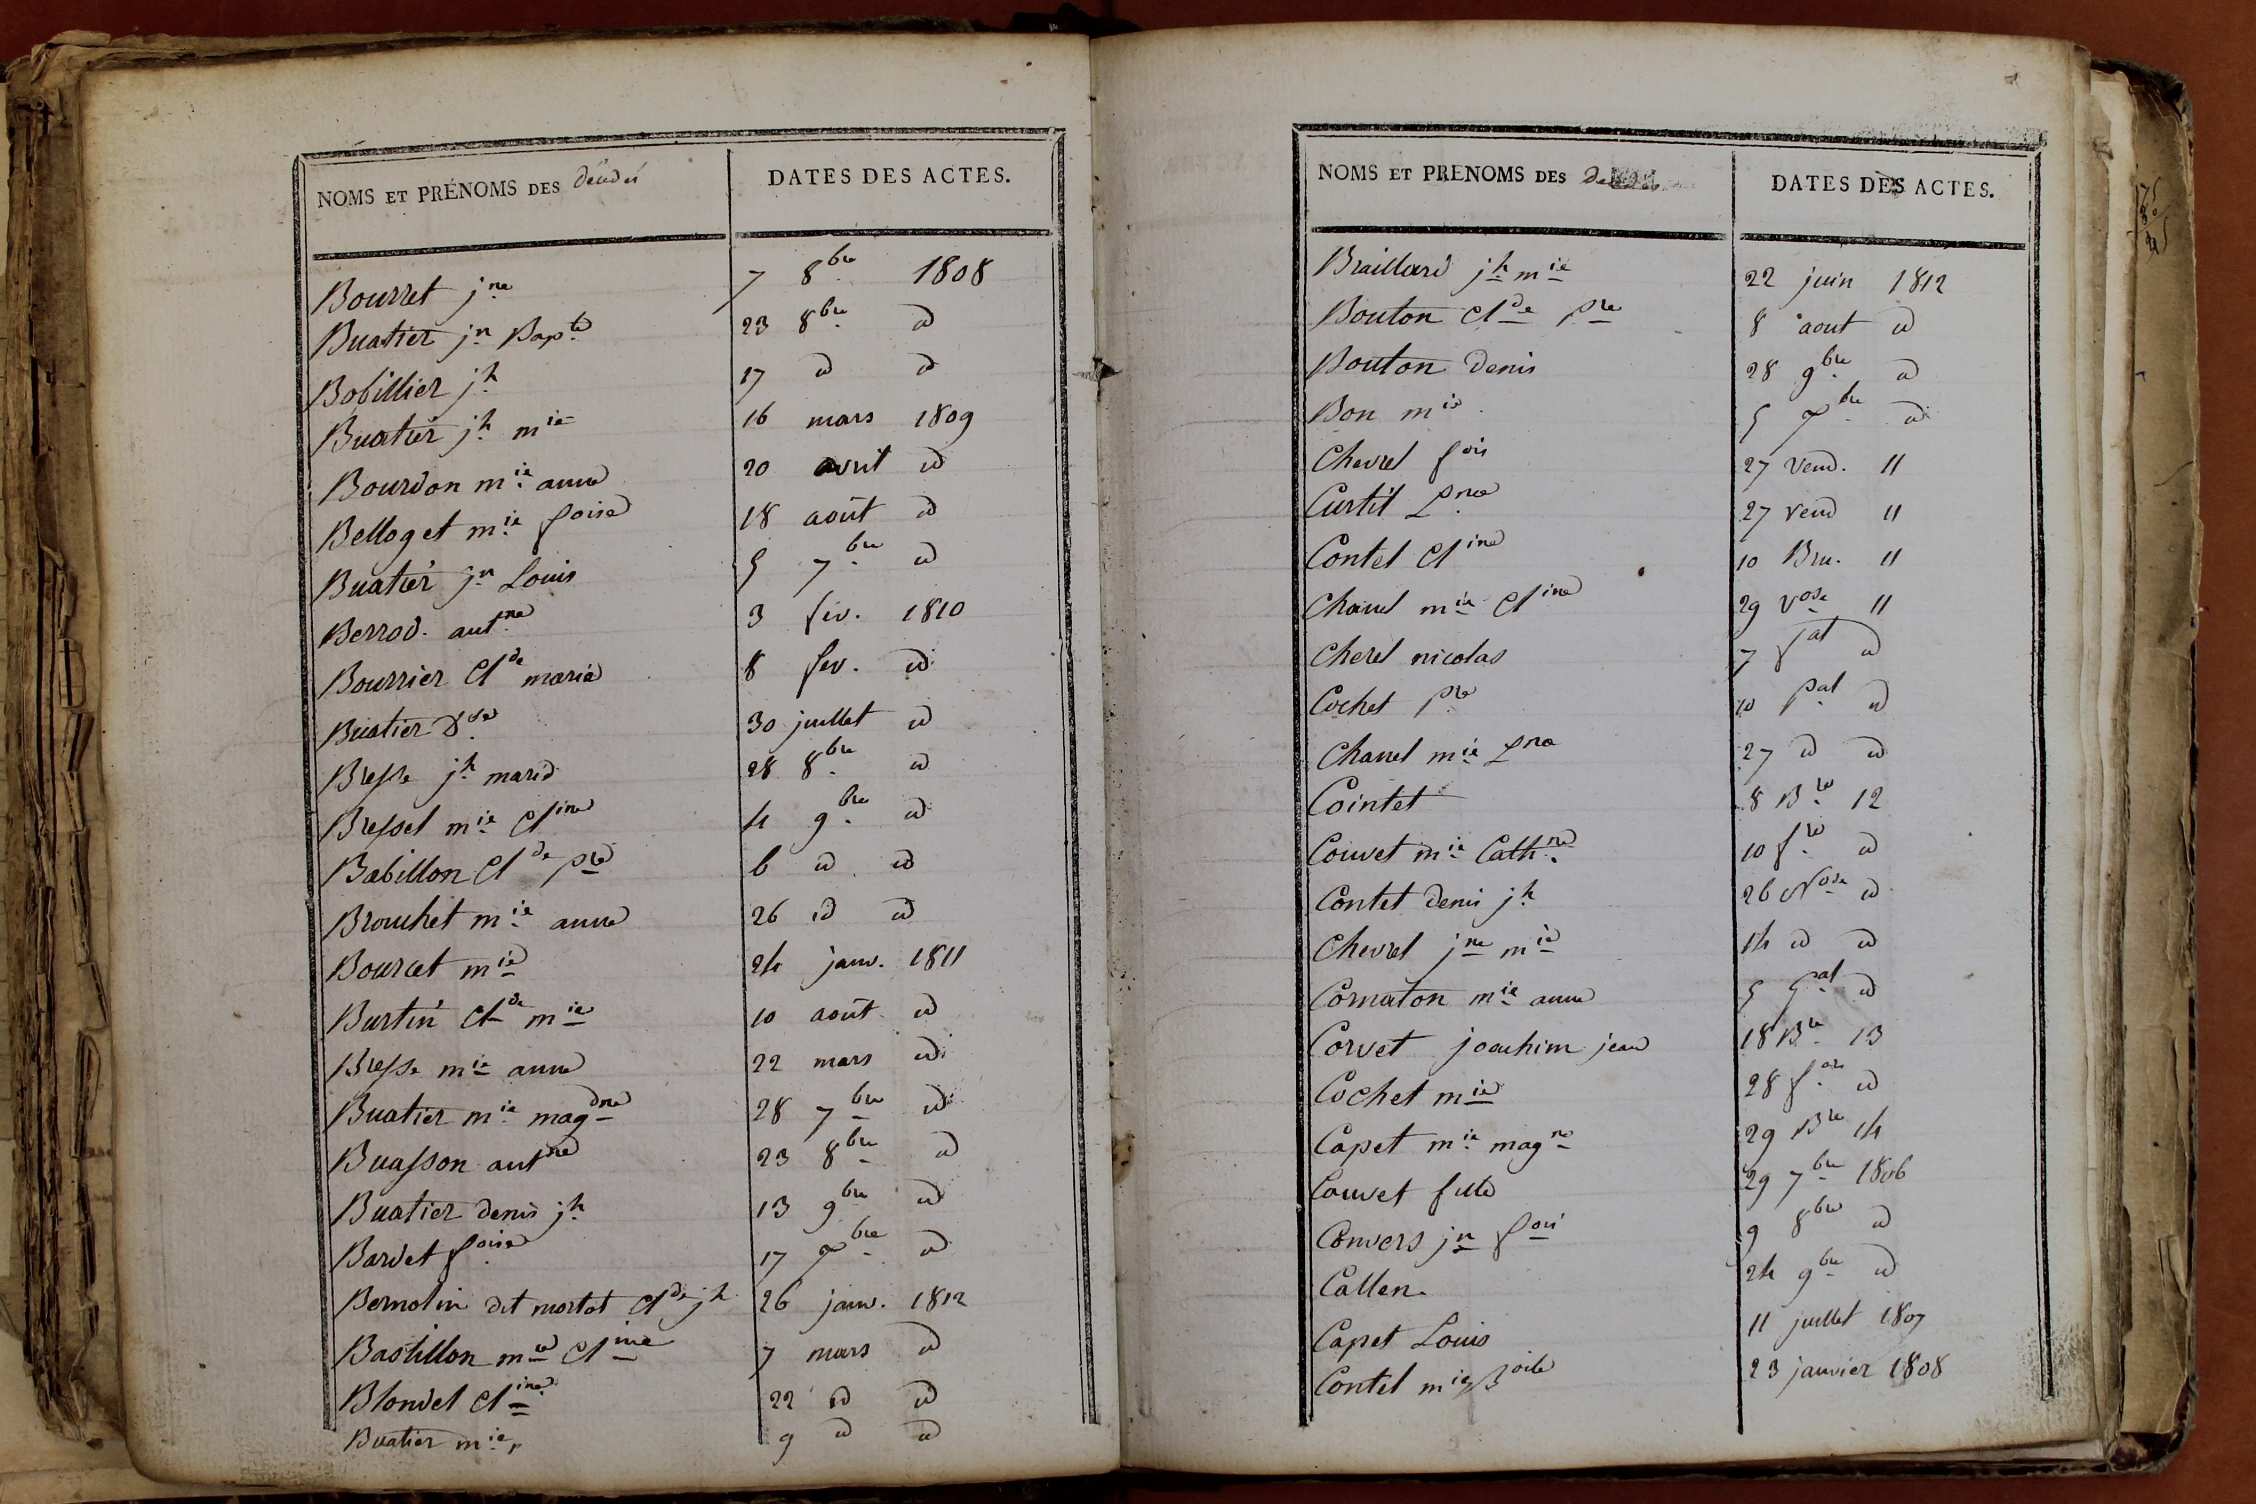 NOMS ET PRÉNOMS DES décédés
DATES DES ACTES.
Bourret jne 7 8bre 1808
Buatier jn Bapte 23 8bre id
Bobillier jh 17 id id
Buatier jh mie 16 mars 1809
Bourdon mie anne 20 avril id
Belloget mie foise 18 août id
Buatier jn Louis 5 7bre id
Berrod. antne 3 fev. 1810
Bourrier Clde marie 8 fev. id
Buatier 30 juillet id
Bresse jh marie 28 8bre id
Bressel mie Cline 4 9bre id
Babillon Clde pre 6 id id
Brouchet mie anne 26 id id
Bourcet mie 24 janv. 1811
Burtin Clde mie 10 août id
Bresse mie anne 22 mars id
Buatier mie magdne 28 7bre id
Buasson antne 23 8bre id
Buatier denis jh 13 9bre id
Bardet foise 17 Xbre id
Bernolin dit mortot Clde jh 26 janv. 1812
Bastillon mie Cline 7 mars id
Blondel Cline 22 id id
Buatier mie 9 id id
NOMS ET PRENOMS DES
DATES DES ACTES.
Braillard jh mie 22 juin 1812
Bouton Clde pre 8 aout id
Bouton denis 28 9bre id
Bon mie 5 Xbre id
Chevrel fois 27 Vend. 11
Curtil Pne 27 Vend 11
Contel Cline 10 Bru. 11
Chanel mie Cline 29 Vose 11
Cherel nicolas 7 id
Cochet Pre 10 Pal id
Chanel mie Pne 27 id id
Cointet 8 Bre 12
Couvet mie Cathne 10 fre id
Contet denis jh 26 Nose id
Chevrel jne mie 14 id id
Cornaton mie anne 5 Gal id
Corvet joachim jean 18 Bre 13
Cochet mie 28 id
Capet mie magne 29 Bre 14
Couvet fille 29 7bre 1806
Convers jn fois 9 8bre id
Callen. 24 9bre id
Capet Louis 11 juillet 1807
Contel mie 23 janvier 1808